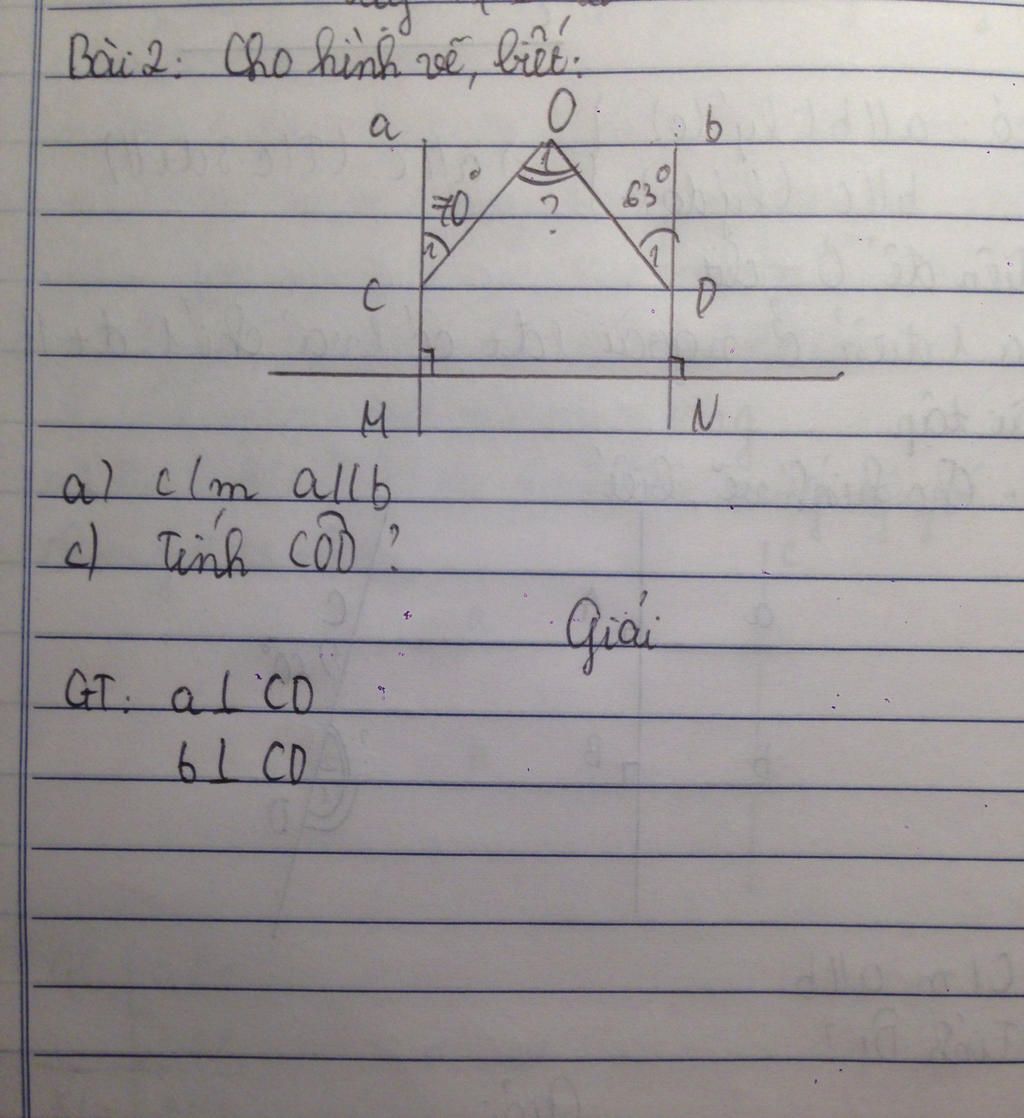 Bài 2: Cho hình vẽ, biết:
a O b
70° 1 63°
?
1 1
C D
M N
a) c/m a//b
c) Tính CÔD?
Giải
GT: a ⊥ CD
b ⊥ CD